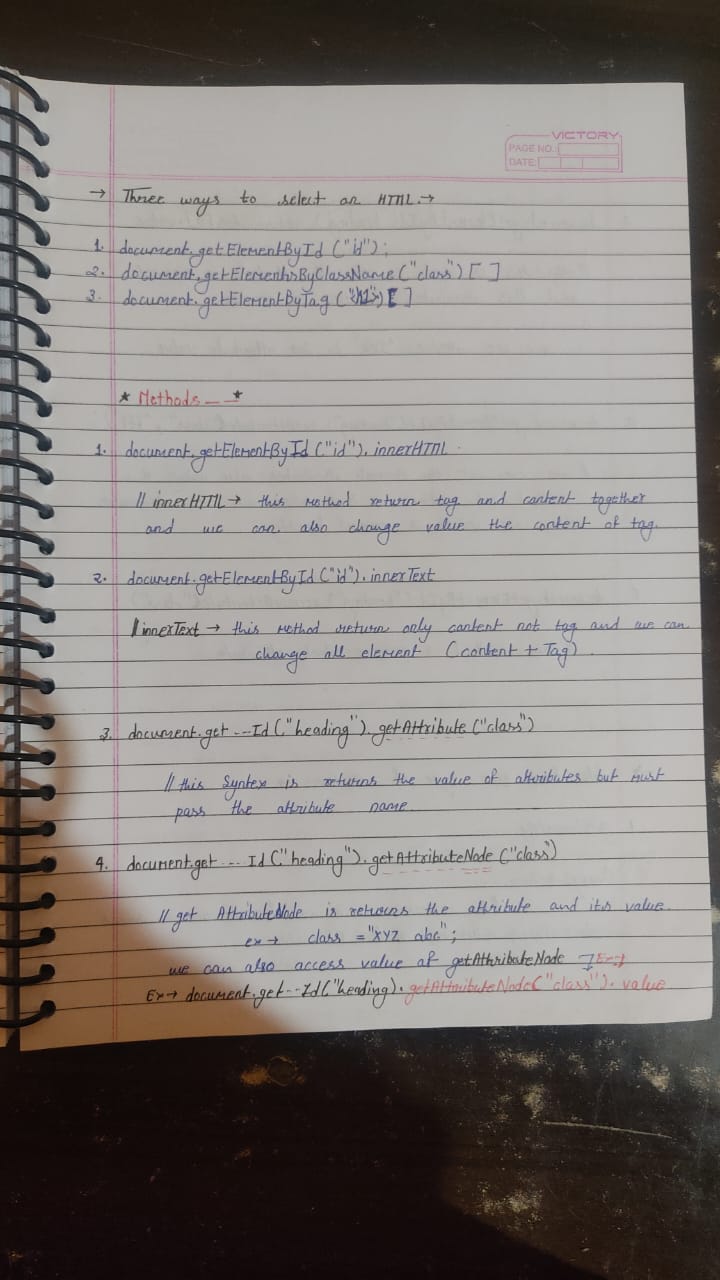 VICTORY
PAGE NO.:
DATE:
→ Three ways to select an HTML →
1. document.getElementById ("id");
2. document.getElementsByClassName ("class") [ ]
3. document.getElementByTag ("h1") [ ]
* Methods — — *
1. document.getElementById ("id"). innerHTML
// innerHTML → this method return tag and content together
and we can also change value the content of tag.
2. document.getElementById ("id"). innerText
// innerText → this method return only content not tag and we can
change all element (content + Tag)
3. document.get ---Id ("heading"). getAttribute ("class")
// this Syntex is returns the value of attributes but must
pass the attribute name
4. document.get --- Id ("heading"). getAttributeNode ("class")
// get AttributeNode is returns the attribute and its value.
ex → class = "xyz abc";
we can also access value of getAttributeNode Ex→
Ex → document.get--Id("heading). getAttributeNode("class"). value